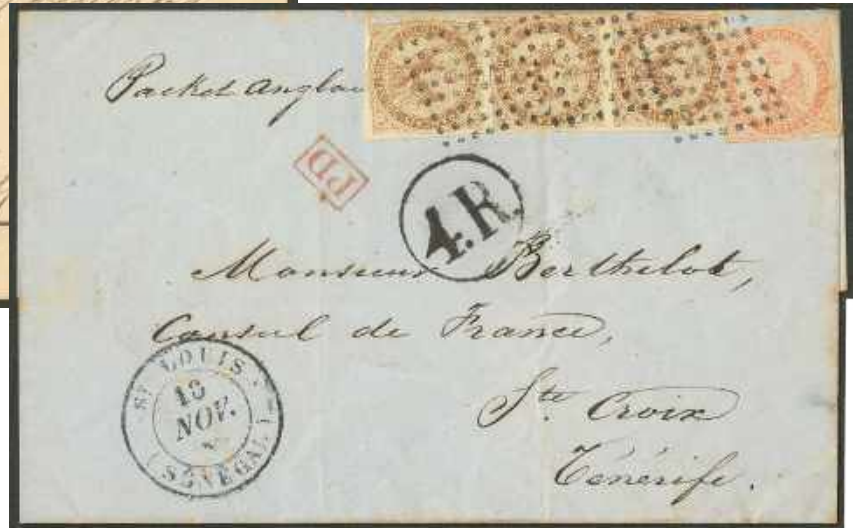 Packet anglais
PD
4.R
Monsieur Berthelot,
Consul de France,
Ste Croix
Ténérife.
ST LOUIS
NOV.
(SÉNÉGAL)